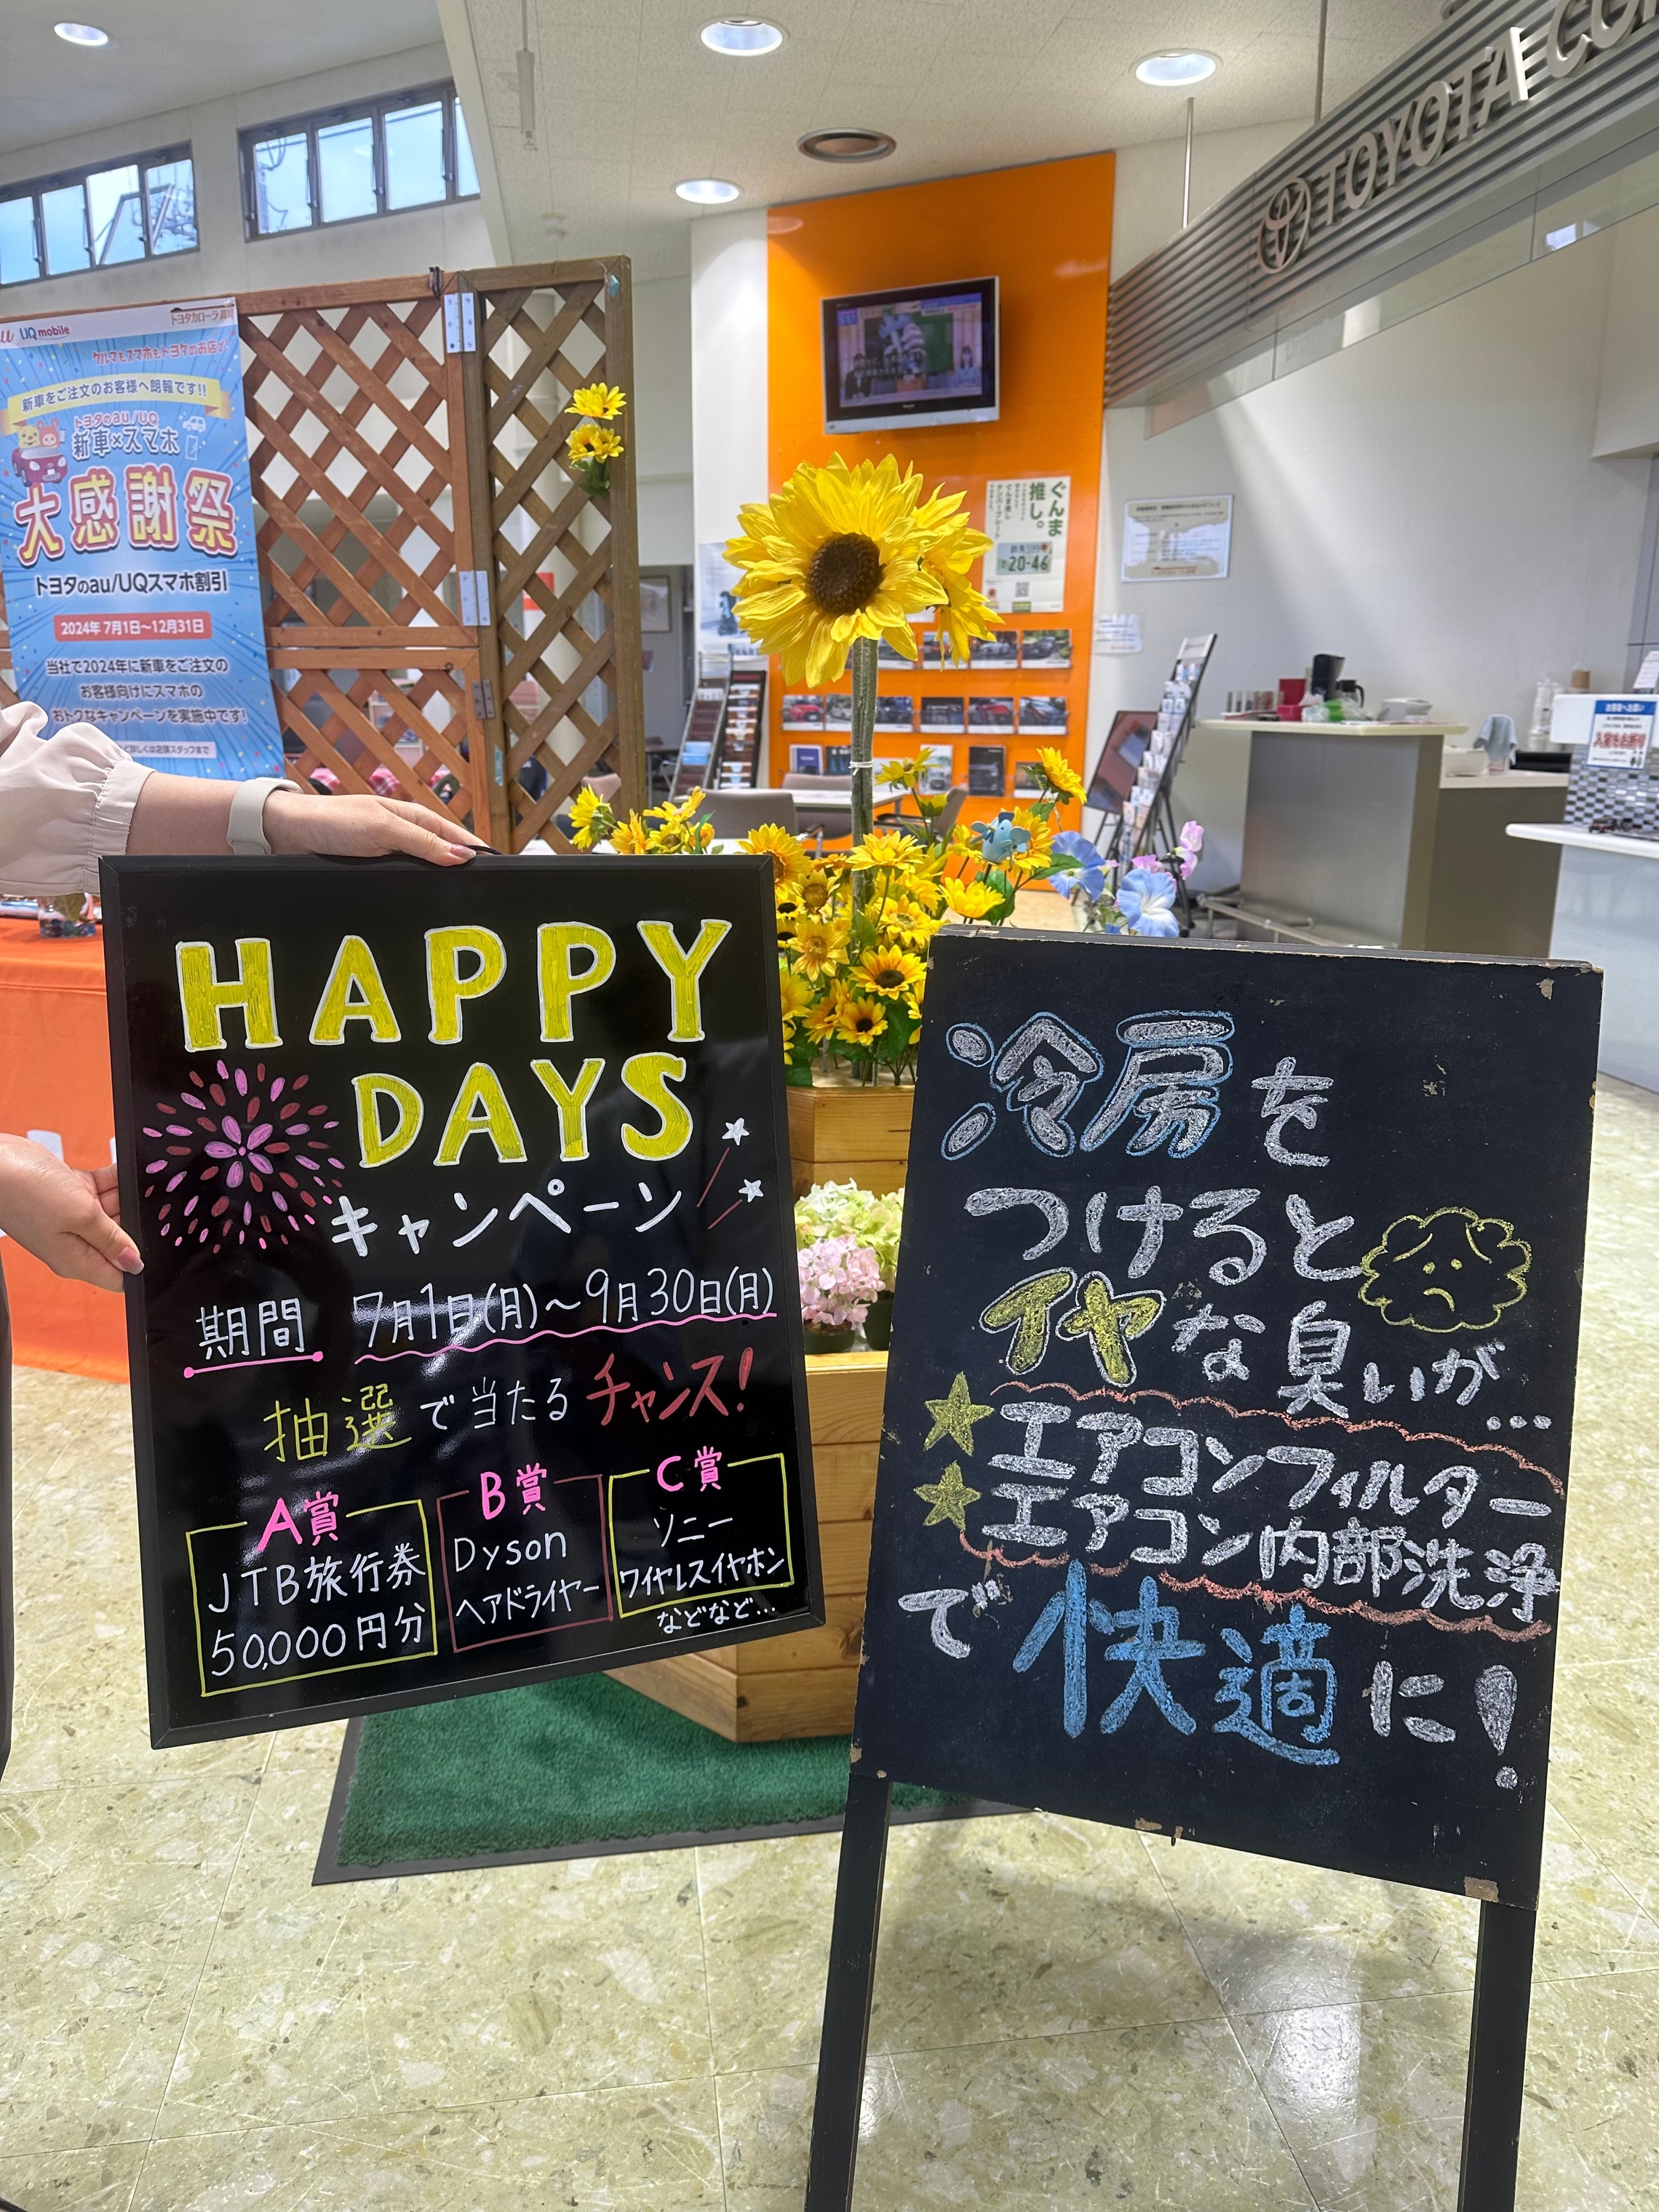 TOYOTA
UQ mobile
トヨタカローラ
クルマもスマホもトヨタのお店で!
新車をご注文のお客様へ朗報です!!
トヨタのau/UQ
新車×スマホ
大感謝祭
トヨタのau/UQスマホ割引
2024年 7月1日～12月31日
当社で2024年に新車をご注文の
お客様向けにスマホの
おトクなキャンペーンを実施中です!
詳しくは店頭スタッフまで
ぐんま
推し。
20-46
HAPPY
DAYS
キャンペーン
期間 7月1日(月)～9月30日(月)
抽選で当たるチャンス!
A賞
JTB旅行券
50,000円分
B賞
Dyson
ヘアドライヤー
C賞
ソニー
ワイヤレスイヤホン
などなど…
冷房を
つけると
イヤな臭いが…
★エアコンフィルター
★エアコン内部洗浄
で快適に!